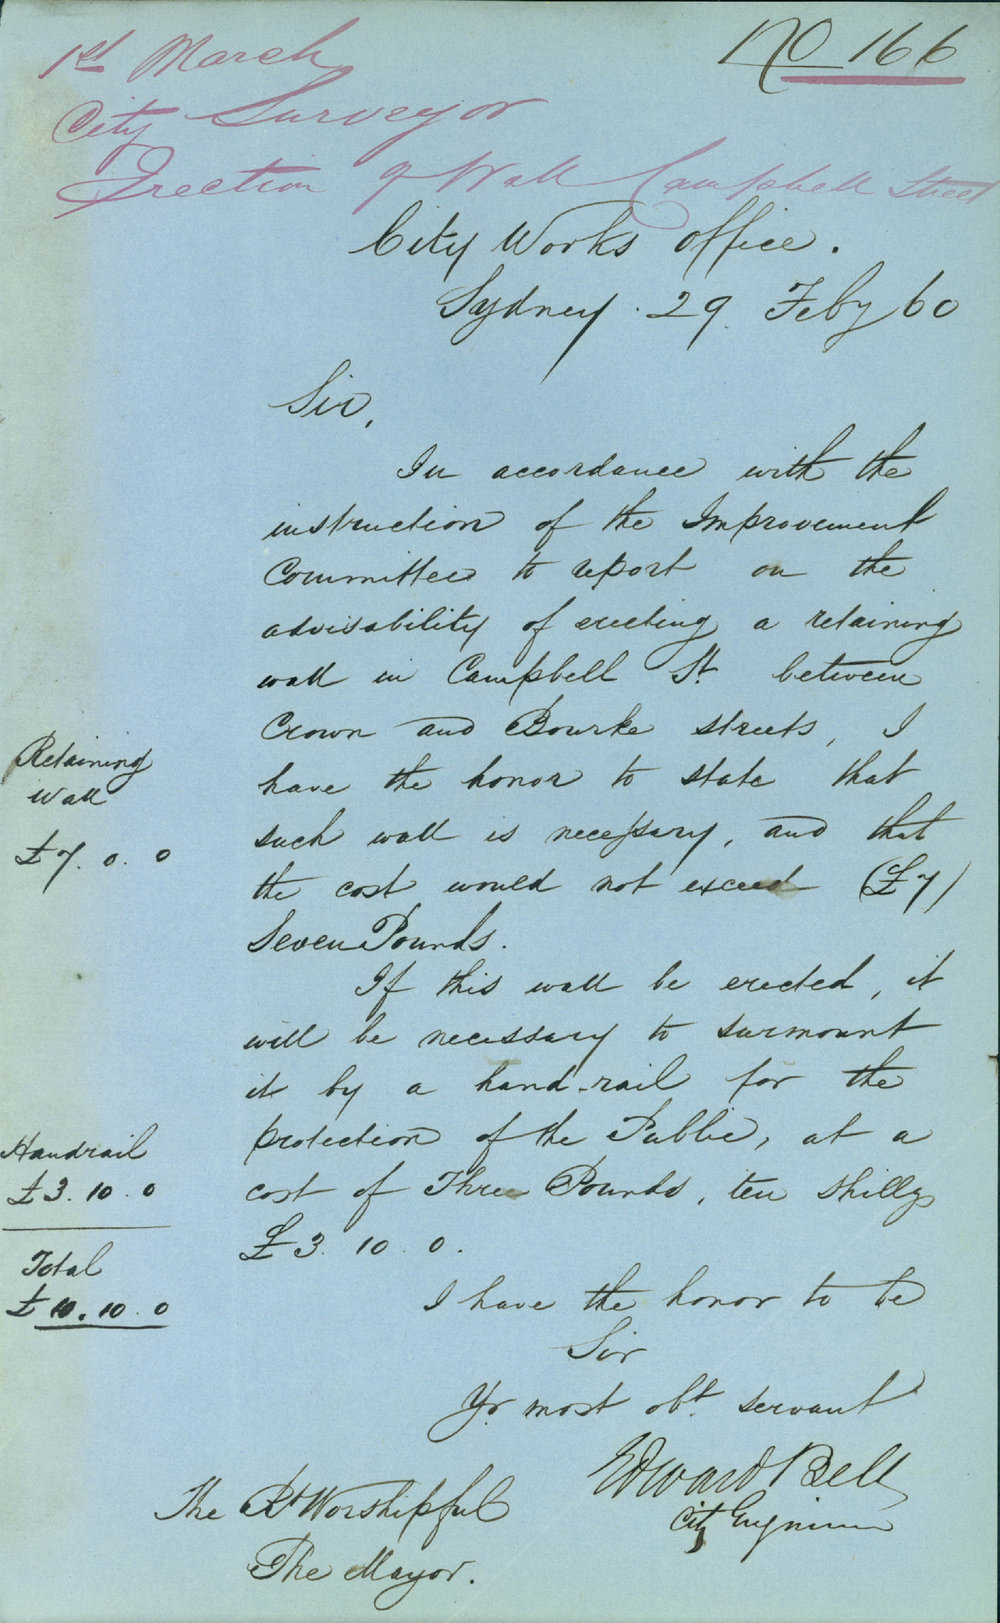 No 166
1st March
City Surveyor
Erection of Wall Campbell Street
City Works Office.
Sydney. 29. Feby 60
Sir,
In accordance with the
instruction of the Improvement
Committee to report on the
advisability of erecting a retaining
wall in Campbell St. between
Crown and Bourke streets, I
have the honor to state that
such wall is necessary, and that
the cost would not exceed (£7)
Seven Pounds.
Retaining
Wall
£7. 0. 0
If this wall be erected, it
will be necessary to surmount
it by a hand-rail for the
protection of the Public, at a
cost of Three Pounds, ten shillgs
£3. 10. 0.
Handrail
£3. 10. 0
Total
£10. 10. 0
I have the honor to be
Sir
Yr. most obt. servant
Edward Bell
City Engineer
The Rt Worshipful
The Mayor.